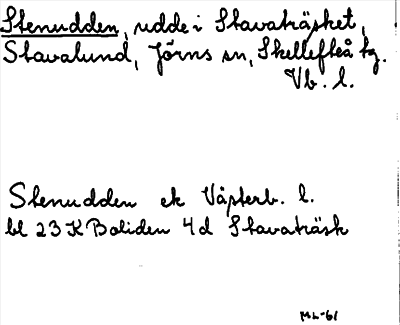 Stenudden, udde i Stavaträsket,
Stavalund, Jörns sn, Skellefteå tg.
Vb. l.
Stenudden ek Västerb. l.
bl 23 K Boliden 4d Stavaträsk
ML-61